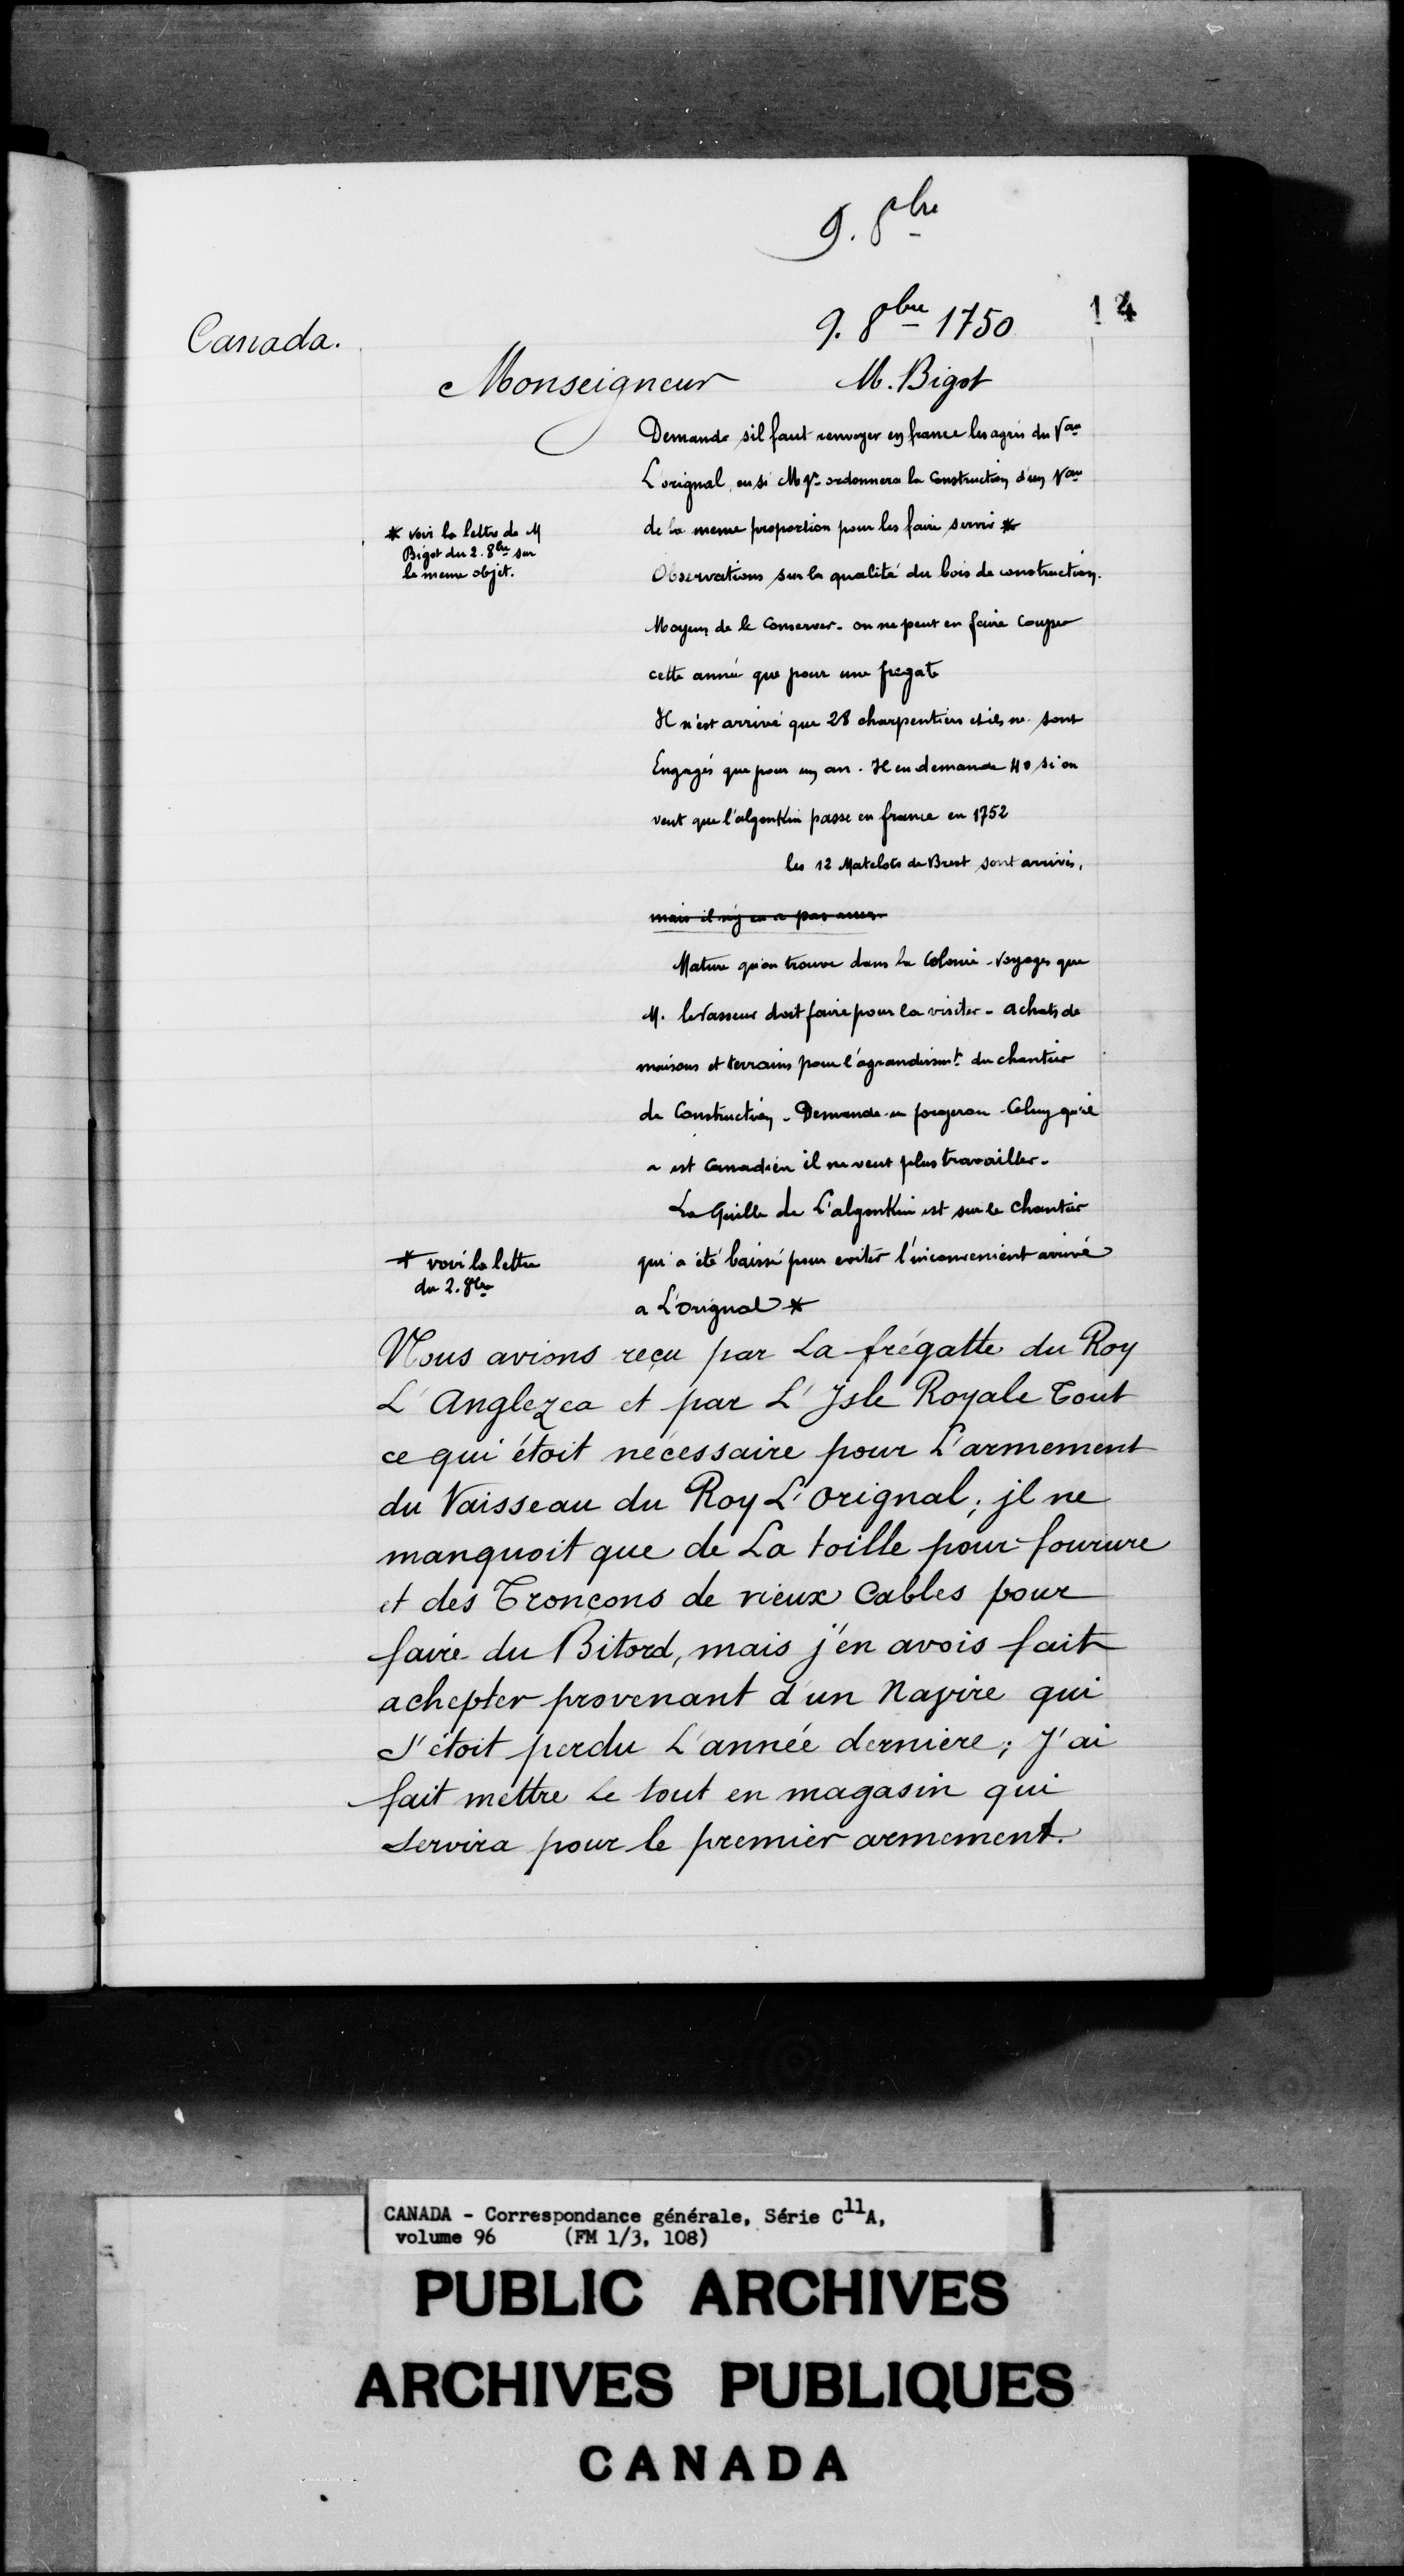 9. 8bre
9. 8bre 1750
14
Canada.
Monseigneur
M. Bigot
Demande sil faut renvoyer en france les agrès du Vau
L'orignal, ou si Mgr ordonnera la Construction d'un Vau
de la meme proportion pour les faire servir *
* voir la lettre de M
Bigot du 2. 8bre sur
le meme objet.
Observations sur la qualité du bois de construction.
Moyens de le Conserver. on ne peut en faire Couper
cette année que pour une fregate
Il n'est arrivé que 28 charpentiers et ils ne sont
Engagés que pour un an. Il en demande 40 si on
veut que l'algonkin passe en france en 1752
les 12 Matelots de Brest sont arrivés,
mais il n'y en a pas
Mature qu'on trouve dans la Colonie - Voyages que
M. levasseur doit faire pour la visiter - achats de
maisons et terrains pour l'agrandissmt. du chantier
de Construction - Demande un forgeron - Celuy qu'il
a est Canadien il ne veut plus travailler.
La Quille de L'algonkin est sur le Chantier
qui a été baissé pour eviter l'inconvenient arrivé
a L'orignal *
* voir la lettre
du 2. 8bre
Nous avions reçu par La frégatte du Roy
L'Anglezea et par L'Isle Royale Tout
ce qui étoit nécessaire pour L'armement
du Vaisseau du Roy L'orignal; jl ne
manquoit que de La toille pour fourure
et des Tronçons de vieux Cables pour
faire du Bitord, mais j'en avois fait
achepter provenant d'un Navire qui
s'étoit perdu L'année derniere; J'ai
fait mettre Le tout en magasin qui
Servira pour le premier armement.
CANADA - Correspondance générale, Série C11A,
volume 96 (FM 1/3, 108)
PUBLIC ARCHIVES
ARCHIVES PUBLIQUES
CANADA